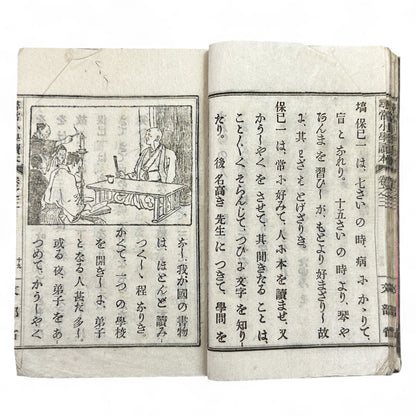 塙保己一は、七さいの時、病にかゝりて、
盲となれり。十五さいの時より、琴や
あんまを習ひしが、もとより好まざりし故、
よ、其わざえとげざりき。
保己一は、常に好みて、人に本を讀ませ、又
かうしやくをさせて、其聞きたることは、
ことごとく、そらんじて、つひに文字を知り
たり。後名高き先生につきて、學問を
なし、我が國の書物
は、ほとんど讀み
つくしし程なりき。
かくて、一つの學校
を開きしに、弟子
となる人甚だ多し。
或る夜、弟子をあ
つめて、かうしやく
尋常小學讀本
文部省